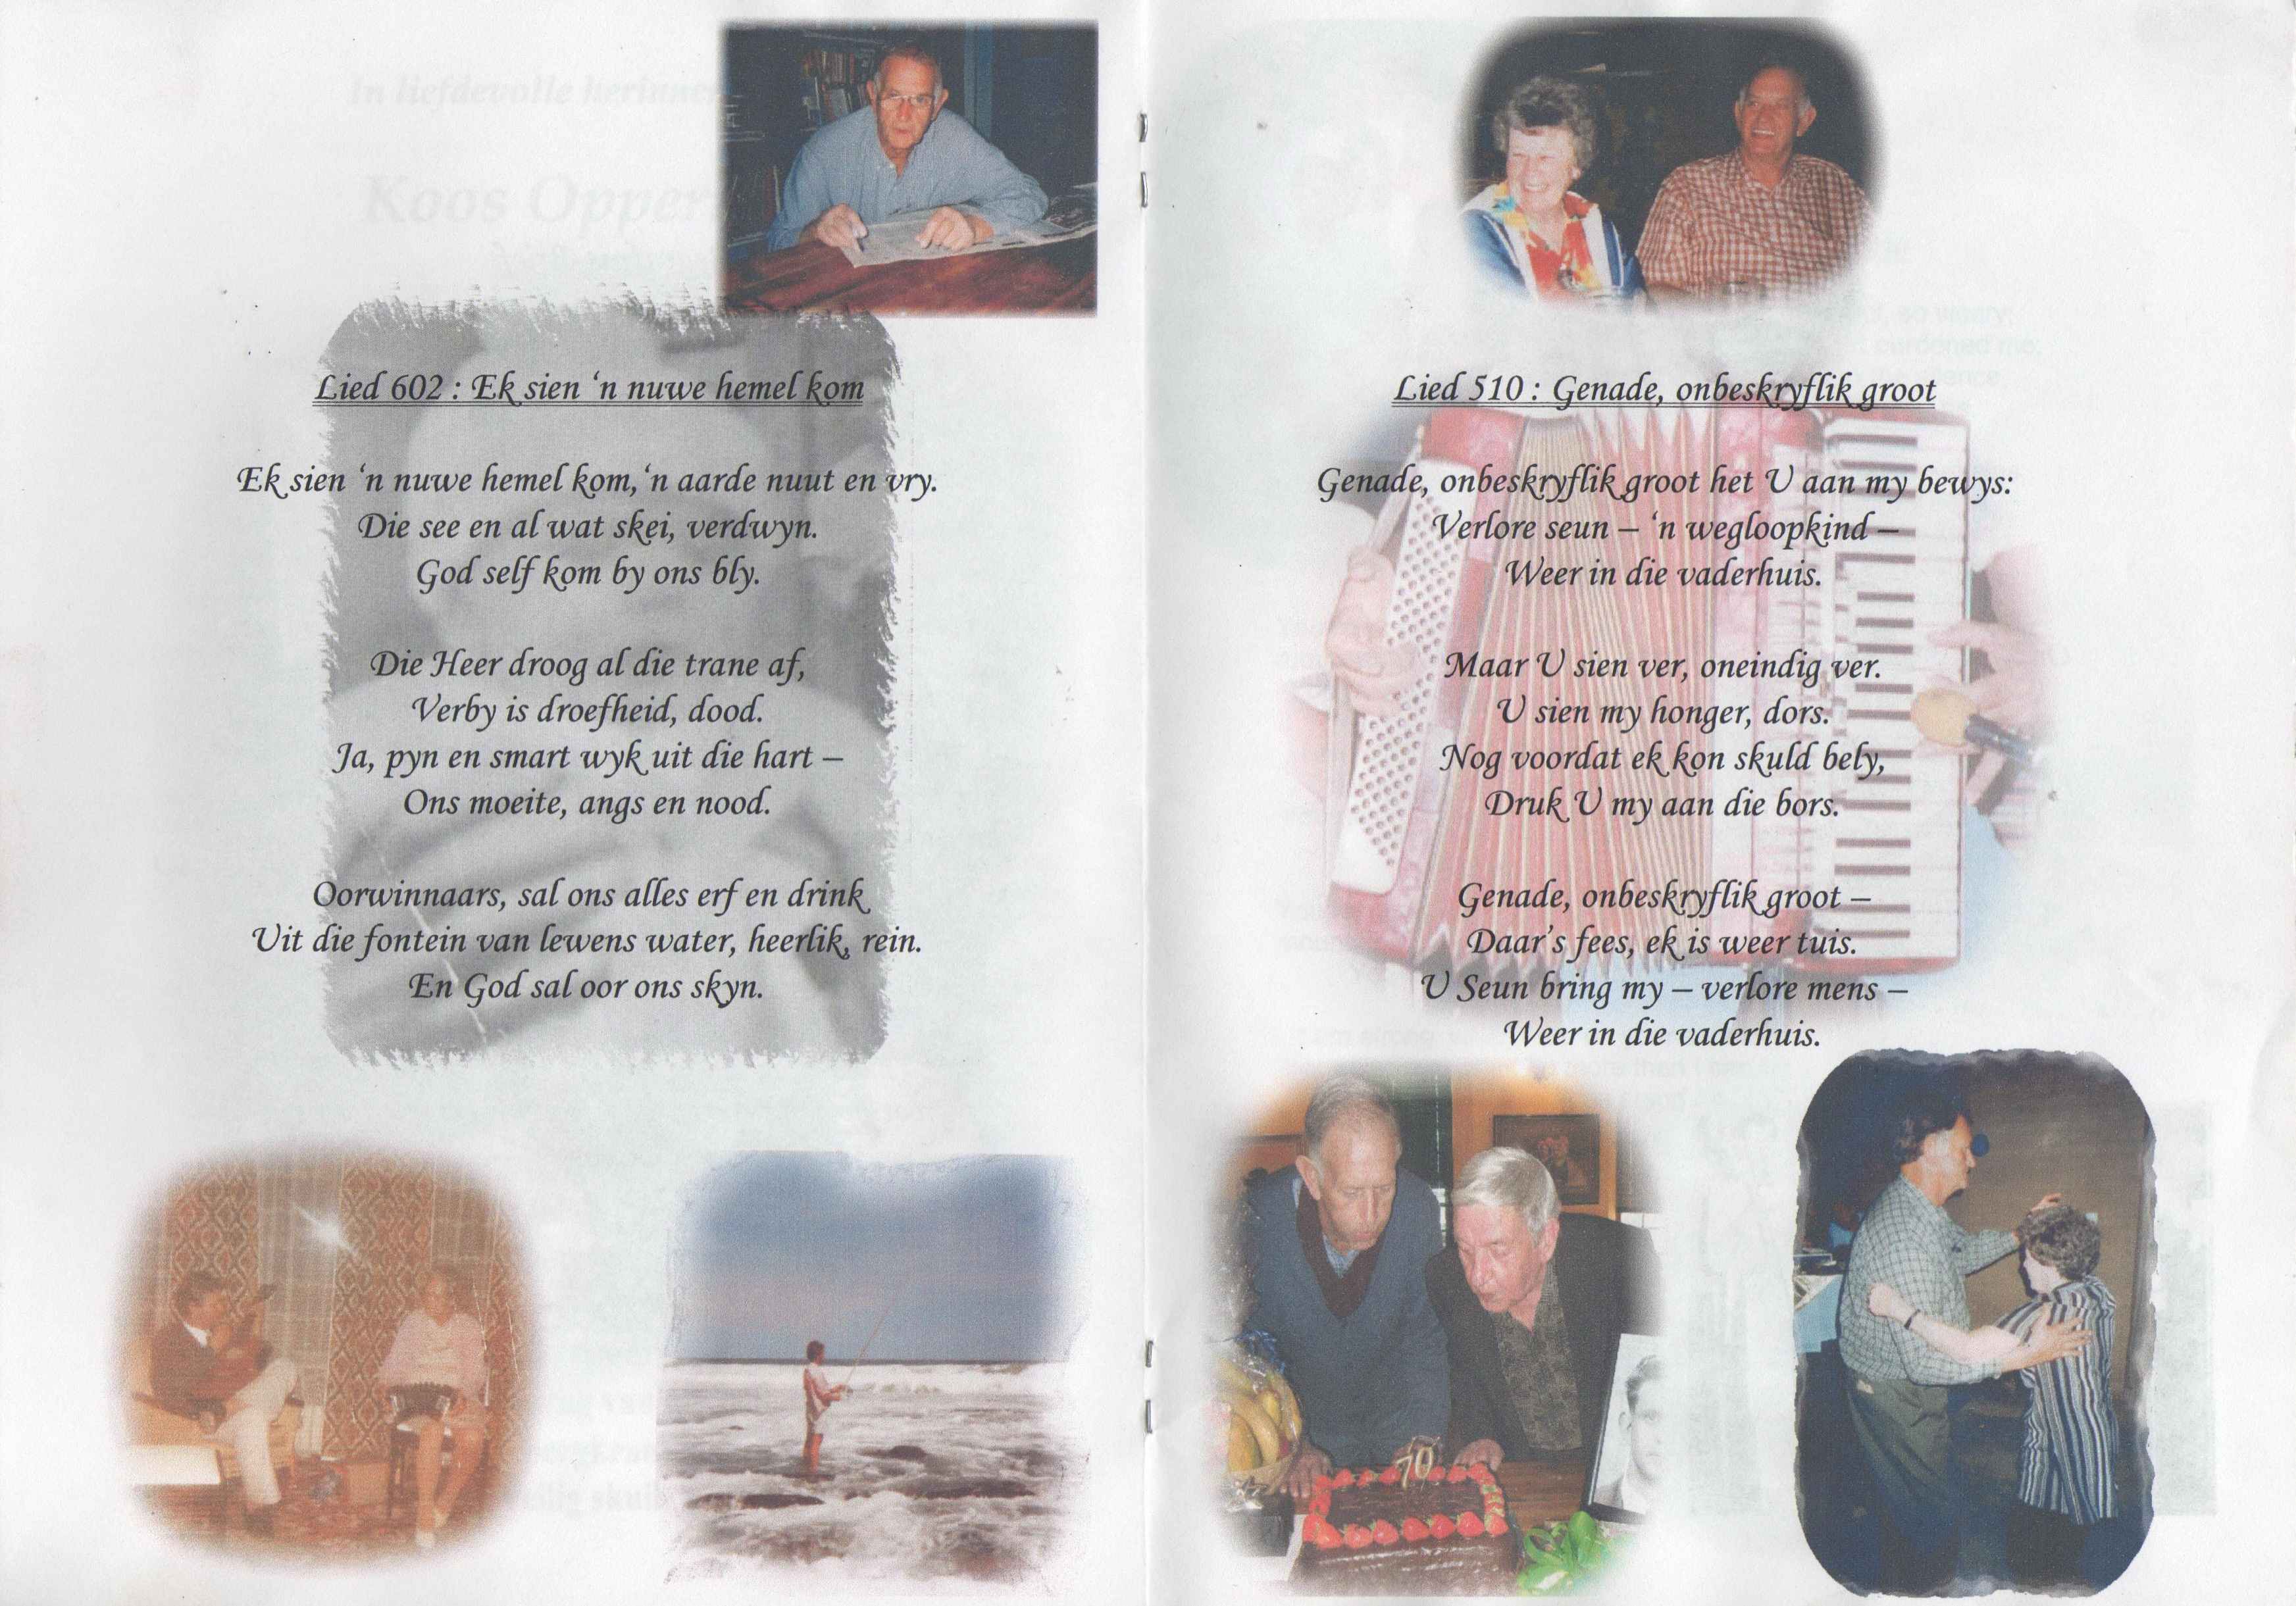 In liefdevolle
Koos
Lied 602 : Ek sien ‘n nuwe hemel kom
Ek sien ‘n nuwe hemel kom, ‘n aarde nuut en vry.
Die see en al wat skei, verdwyn.
God self kom by ons bly.
Die Heer droog al die trane af,
Verby is droefheid, dood.
Ja, pyn en smart wyk uit die hart –
Ons moeite, angs en nood.
Oorwinnaars, sal ons alles erf en drink
Uit die fontein van lewens water, heerlik, rein.
En God sal oor ons skyn.
Lied 510 : Genade, onbeskryflik groot
Genade, onbeskryflik groot het U aan my bewys:
Verlore seun – ‘n wegloopkind –
Weer in die vaderhuis.
Maar U sien ver, oneindig ver.
U sien my honger, dors.
Nog voordat ek kon skuld bely,
Druk U my aan die bors.
Genade, onbeskryflik groot –
Daar’s fees, ek is weer tuis.
U Seun bring my – verlore mens –
Weer in die vaderhuis.
70